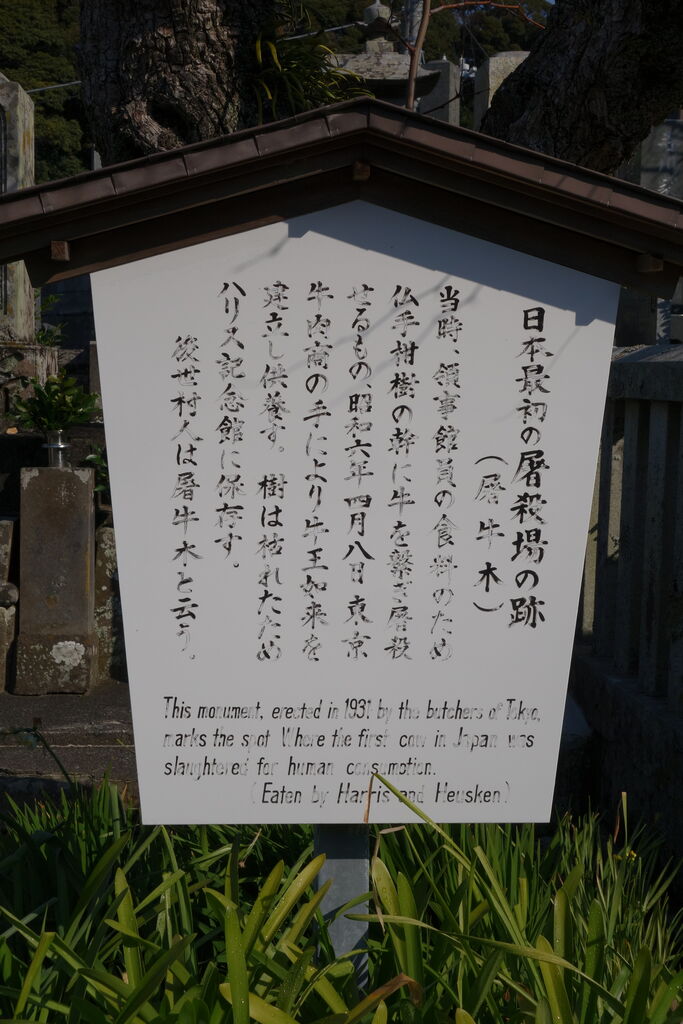 日本最初の屠殺場の跡
（屠牛木）
当時、領事館員の食料のため
仏手柑樹の幹に牛を繋ぎ屠殺
せるもの、昭和六年四月八日東京
牛肉商の手により牛王如来を
建立し供養す。樹は枯れたため
ハリス記念館に保存す。
後世村人は屠牛木と云う。
This monument, erected in 1931 by the butchers of Tokyo,
marks the spot Where the first cow in Japan was
slaughtered for human consumotion.
(Eaten by Harris and Heusken)